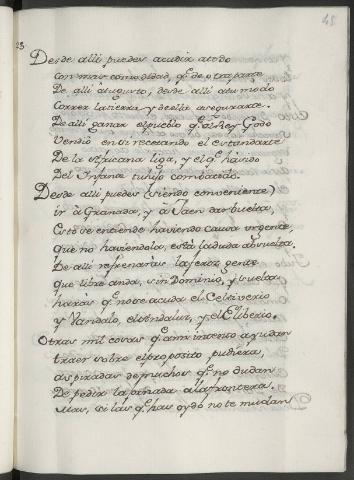 45
23
Desde alli puedes acudir atodo
con mas comodidad, q.e de otra parte
De alli âtugusto, desde alli atu modo
Correr latierra y deella asegurarte.
De alli ganar el pueblo q.e al Rey Godo
Vendiô en si recetando el estandarte
De la Africana liga, y el q.e ha sido
Del Infante tu hijo combatido.
Desde alli puedes (siendo conveniente)
ir à Granada, y à Jaen dar buelta,
Esto se entiende haviendo causa urgente,
que no haviendola, està la duda absuelta.
De alli refrenaràs la feroz gente
que libre anda, sin Dominio, y suelta
haràs q.e nose acuda el Celtiverio
y Vandalo, el Andaluz, y el Eliberio.
Otras mil cosas q.e ami intento ayudan
traer sobre el proposito pudiera,
aspiradas de muchos q.e no dudan
De pedir la armada alla frontera.
Mas, si làs q.e has oydo no te mudan